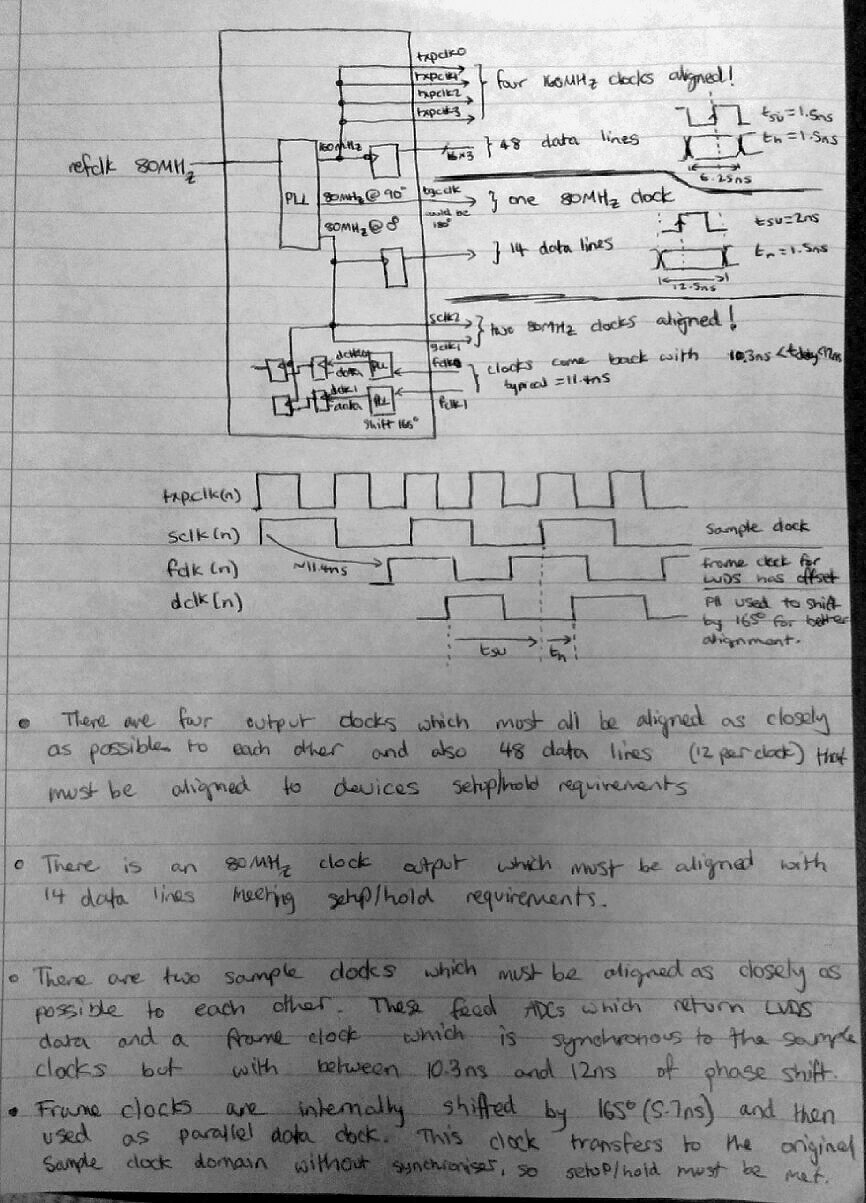 txpclk0
txpclk1
txpclk2
txpclk3
four 160MHz clocks aligned!
refclk 80MHz
160MHz
16x3
48 data lines
tsu=1.5ns
th=1.5ns
6.25ns
PLL
80MHz@90°
bgcclk
could be 180°
one 80MHz clock
80MHz@0
tsu=2ns
14 data lines
th=1.5ns
12.5ns
sclk2
sclk1
two 80MHz clocks aligned!
dclk0
data
PLL
fclk0
clocks come back with 10.3ns < tdelay < 12ns
typical = 11.4ns
dclk1
data
PLL
fclk1
shift 165°
txpclk(n)
sclk(n)
sample clock
~11.4ns
fclk(n)
frame clock for
LVDS has offset
dclk(n)
Pll used to shift
by 165° for better
alignment.
tsu
th
• There are four output clocks which most all be aligned as closely
as possible to each other and also 48 data lines (12 per clock) that
must be aligned to devices setup/hold requirements
• There is an 80MHz clock output which must be aligned with
14 data lines meeting setup/hold requirements.
• There are two sample clocks which must be aligned as closely as
possible to each other. These feed ADCs which return LVDS
data and a frame clock which is synchronous to the sample
clocks but with between 10.3ns and 12ns of phase shift.
• Frame clocks are internally shifted by 165° (5.7ns) and then
used as parallel data clock. This clock transfers to the original
sample clock domain without synchroniser, so setup/hold must be met.